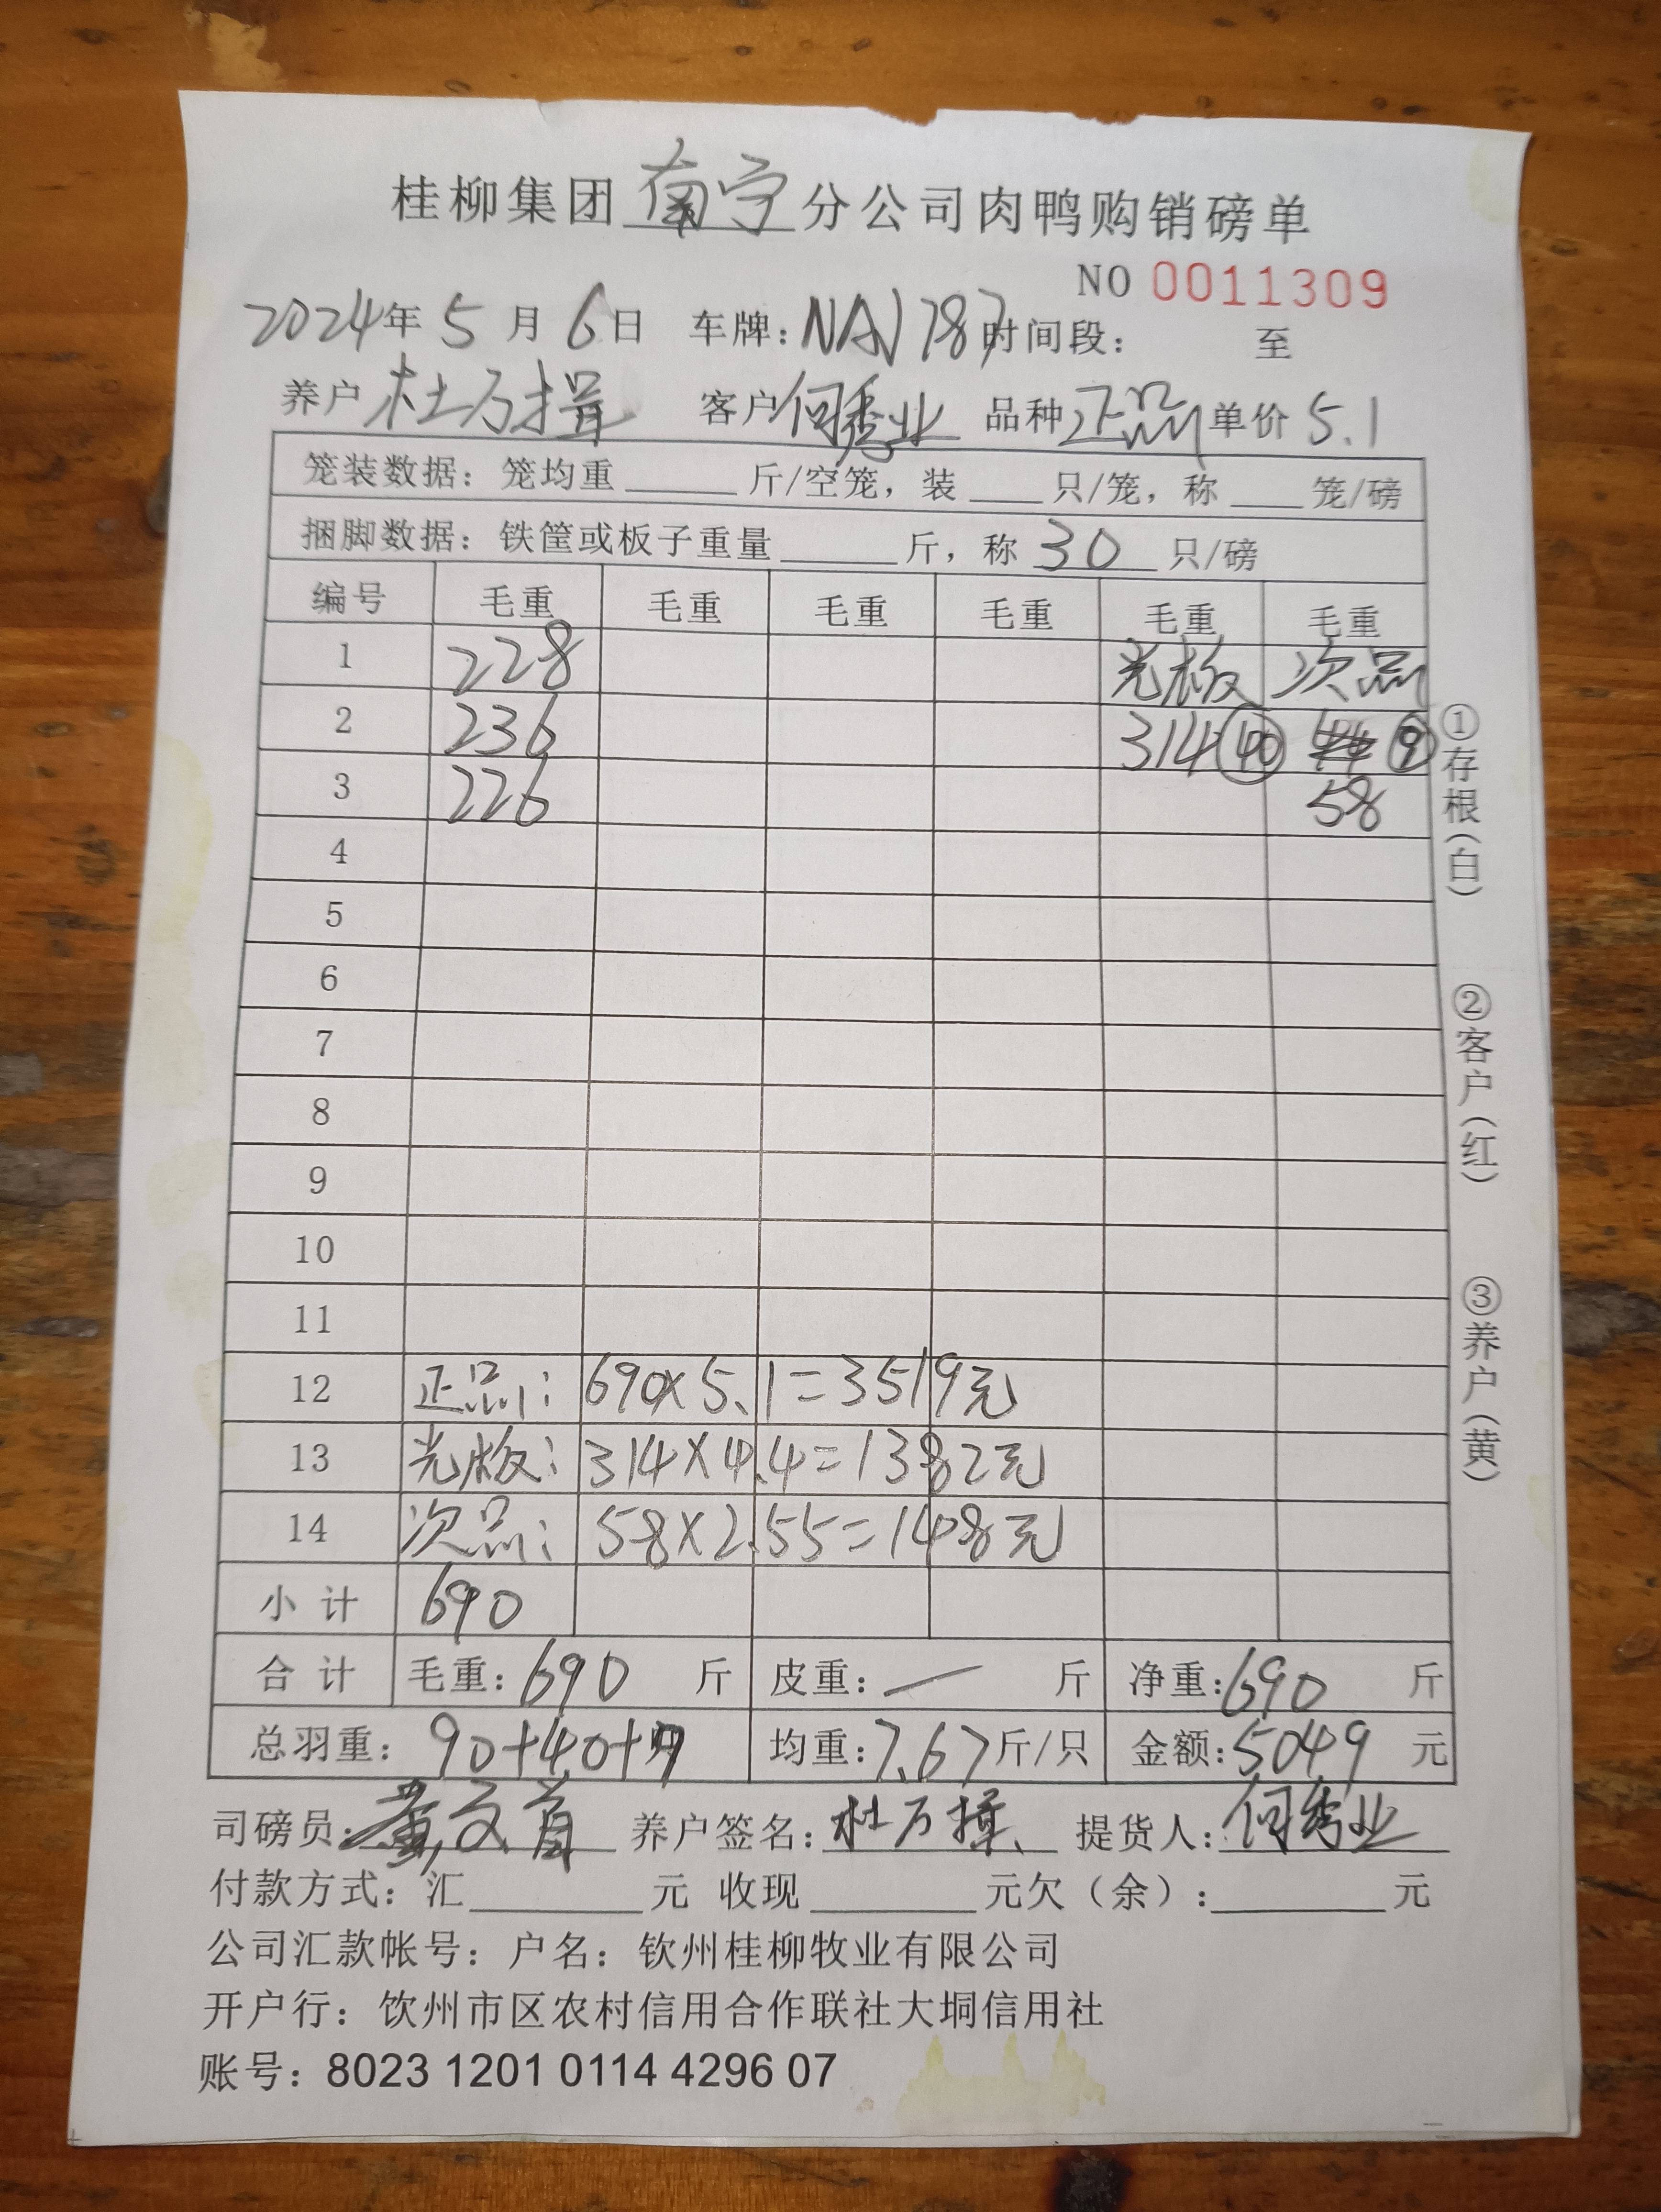 桂柳集团南宁分公司肉鸭购销磅单
NO 0011309
2024年5月6日 车牌:NAJ787时间段: 至
养户 杜万揖 客户何秀业 品种正品 单价5.1
笼装数据: 笼均重 斤/空笼, 装 只/笼, 称 笼/磅
捆脚数据: 铁筐或板子重量 斤, 称 30 只/磅
编号 毛重 毛重 毛重 毛重 毛重 毛重
1 228 光板 次品
2 236 314 40 9
3 226 58
4
5
6
7
8
9
10
11
12 正品: 690×5.1=3519元
13 光板: 314×4.4=1382元
14 次品: 58×2.55=148元
小计 690
合计 毛重:690 斤 皮重:— 斤 净重:690 斤
总羽重: 90+40+9 均重:7.67斤/只 金额:5049 元
司磅员:黄文首 养户签名:杜万揖 提货人:何秀业
付款方式: 汇 元 收现 元欠(余): 元
公司汇款帐号: 户名: 钦州桂柳牧业有限公司
开户行: 饮州市区农村信用合作联社大垌信用社
账号: 8023 1201 0114 4296 07
①存根(白)
②客户(红)
③养户(黄)